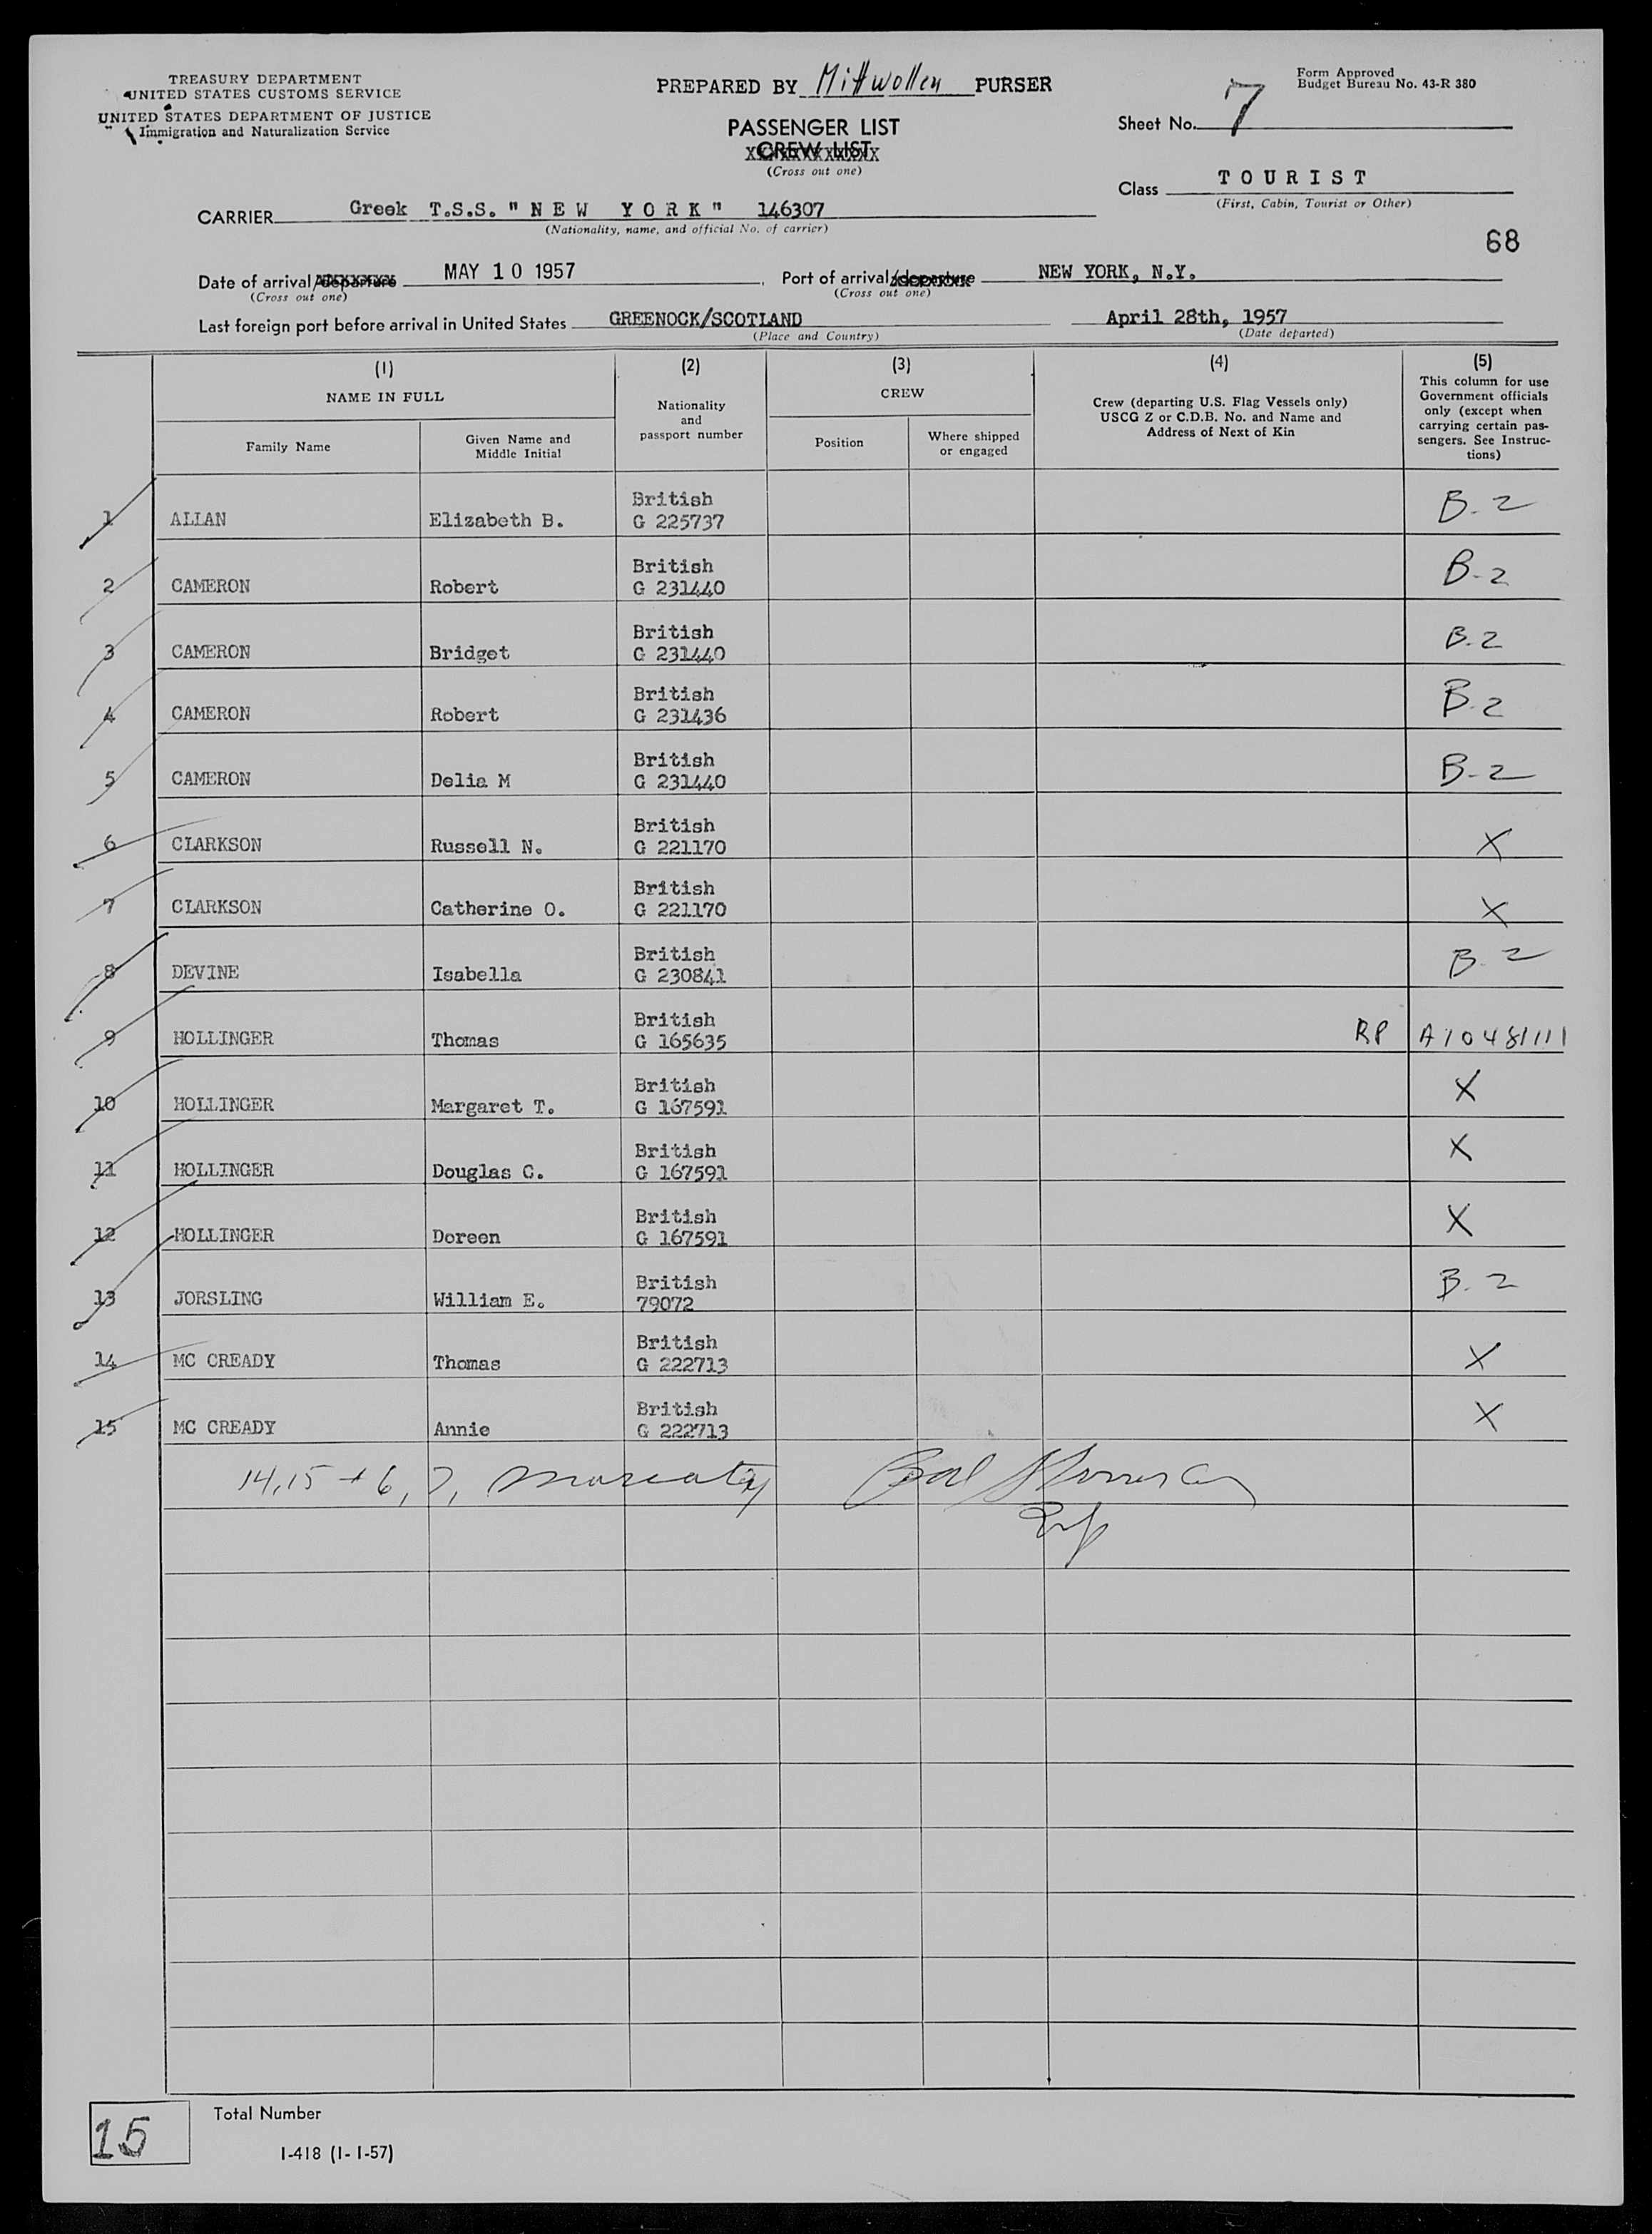 TREASURY DEPARTMENT
UNITED STATES CUSTOMS SERVICE
UNITED STATES DEPARTMENT OF JUSTICE
Immigration and Naturalization Service
PREPARED BY Mittwollen PURSER
PASSENGER LIST
CREW LIST
(Cross out one)
Form Approved
Budget Bureau No. 43-R 380
Sheet No. 7
Class TOURIST
(First, Cabin, Tourist or Other)
CARRIER Greek T.S.S. "NEW YORK" 146307
(Nationality, name, and official No. of carrier)
68
Date of arrival/departure MAY 10 1957
(Cross out one)
Port of arrival/departure NEW YORK, N.Y.
(Cross out one)
Last foreign port before arrival in United States GREENOCK/SCOTLAND April 28th, 1957
(Place and Country) (Date departed)
(1) (2) (3) (4) (5)
NAME IN FULL
Family Name
Given Name and
Middle Initial
Nationality
and
passport number
CREW
Position
Where shipped
or engaged
Crew (departing U.S. Flag Vessels only)
USCG Z or C.D.B. No. and Name and
Address of Next of Kin
This column for use
Government officials
only (except when
carrying certain pas-
sengers. See Instruc-
tions)
British
1 ALLAN Elizabeth B. G 225737 B-2
British
2 CAMERON Robert G 231440 B-2
British
3 CAMERON Bridget G 231440 B-2
British
4 CAMERON Robert G 231436 B-2
British
5 CAMERON Delia M G 231440 B-2
British
6 CLARKSON Russell N. G 221170 X
British
7 CLARKSON Catherine O. G 221170 X
British
8 DEVINE Isabella G 230841 B-2
British
9 HOLLINGER Thomas G 165635 RP A10481111
British
10 HOLLINGER Margaret T. G 167591 X
British
11 HOLLINGER Douglas C. G 167591 X
British
12 HOLLINGER Doreen G 167591 X
British
13 JORSLING William E. 79072 B-2
British
14 MC CREADY Thomas G 222713 X
British
15 MC CREADY Annie G 222713 X
14, 15 + 6, 7,
15 Total Number
I-418 (1-1-57)